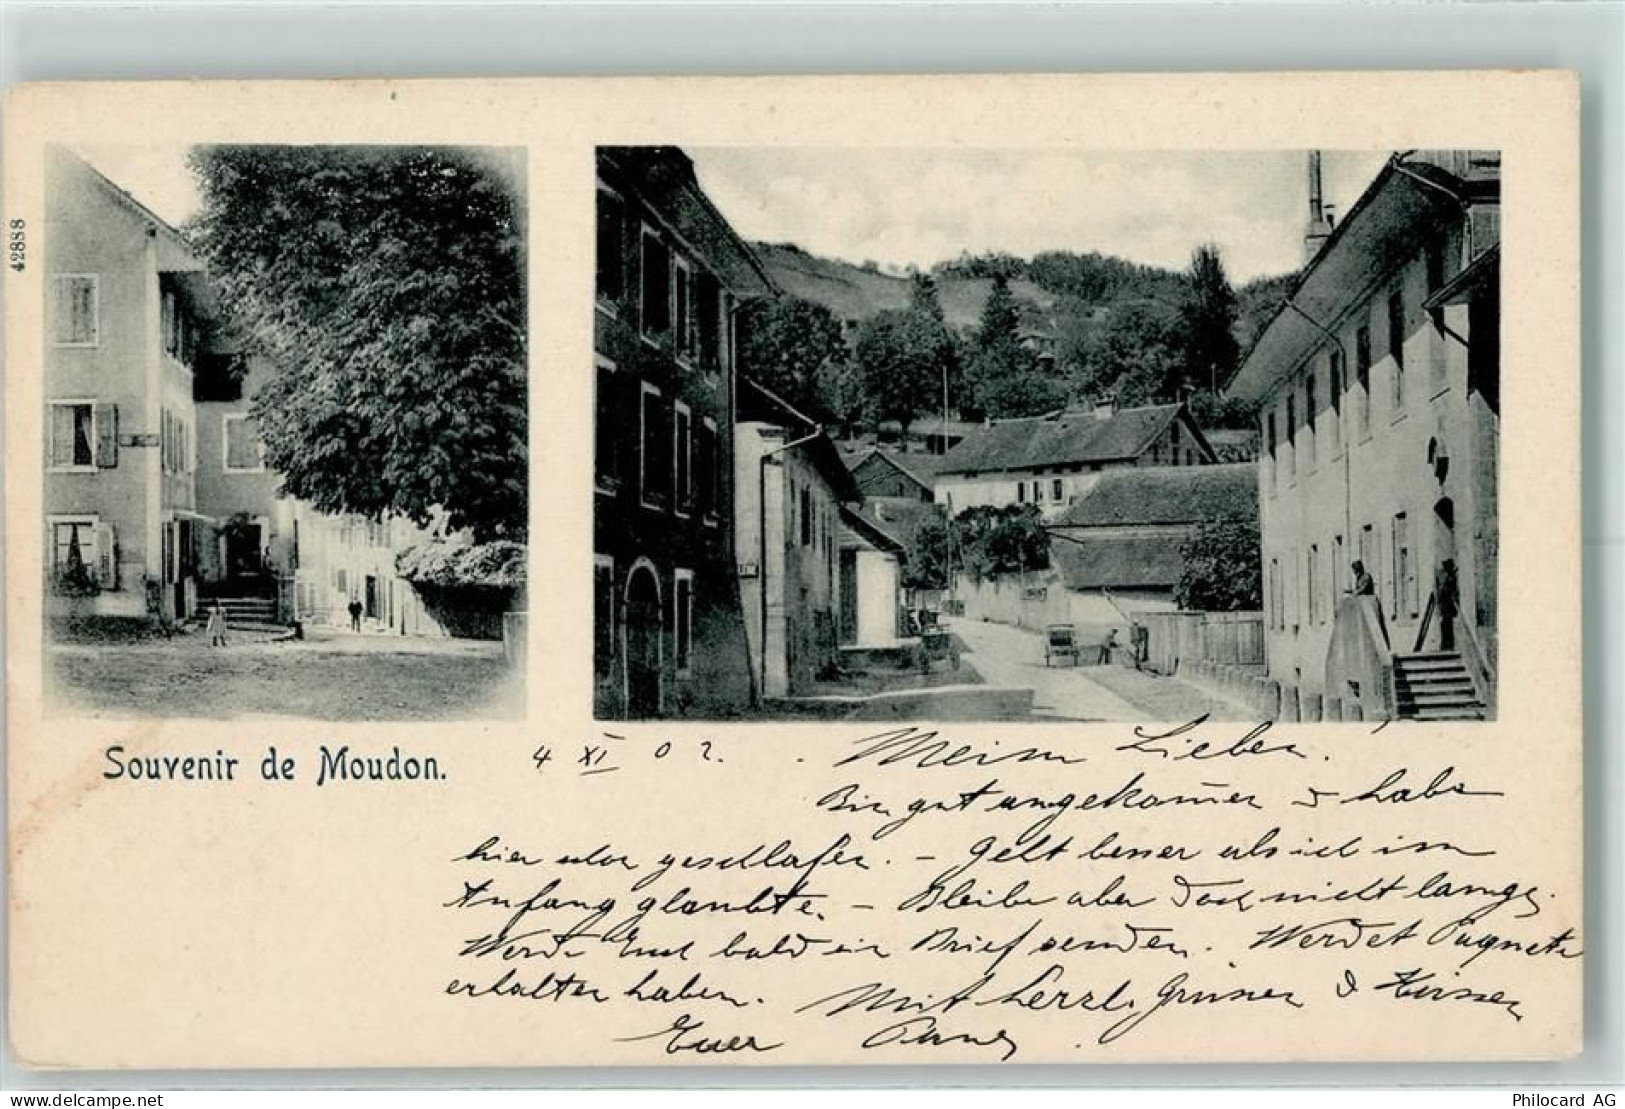 42888
Souvenir de Moudon.
4 XI 02. Meine Lieben.
Bin gut angekom̄en & habe
hier geschlafen. – Gelt besser als ich im
Anfang glaubte. – Bleibe aber doch nicht lange.
Werde Euch bald ein Brief senden. Werdet Paquete
erhalten haben. Mit herzl. Grüssen & Küssen
Euer
delcampe.net
Philocard AG